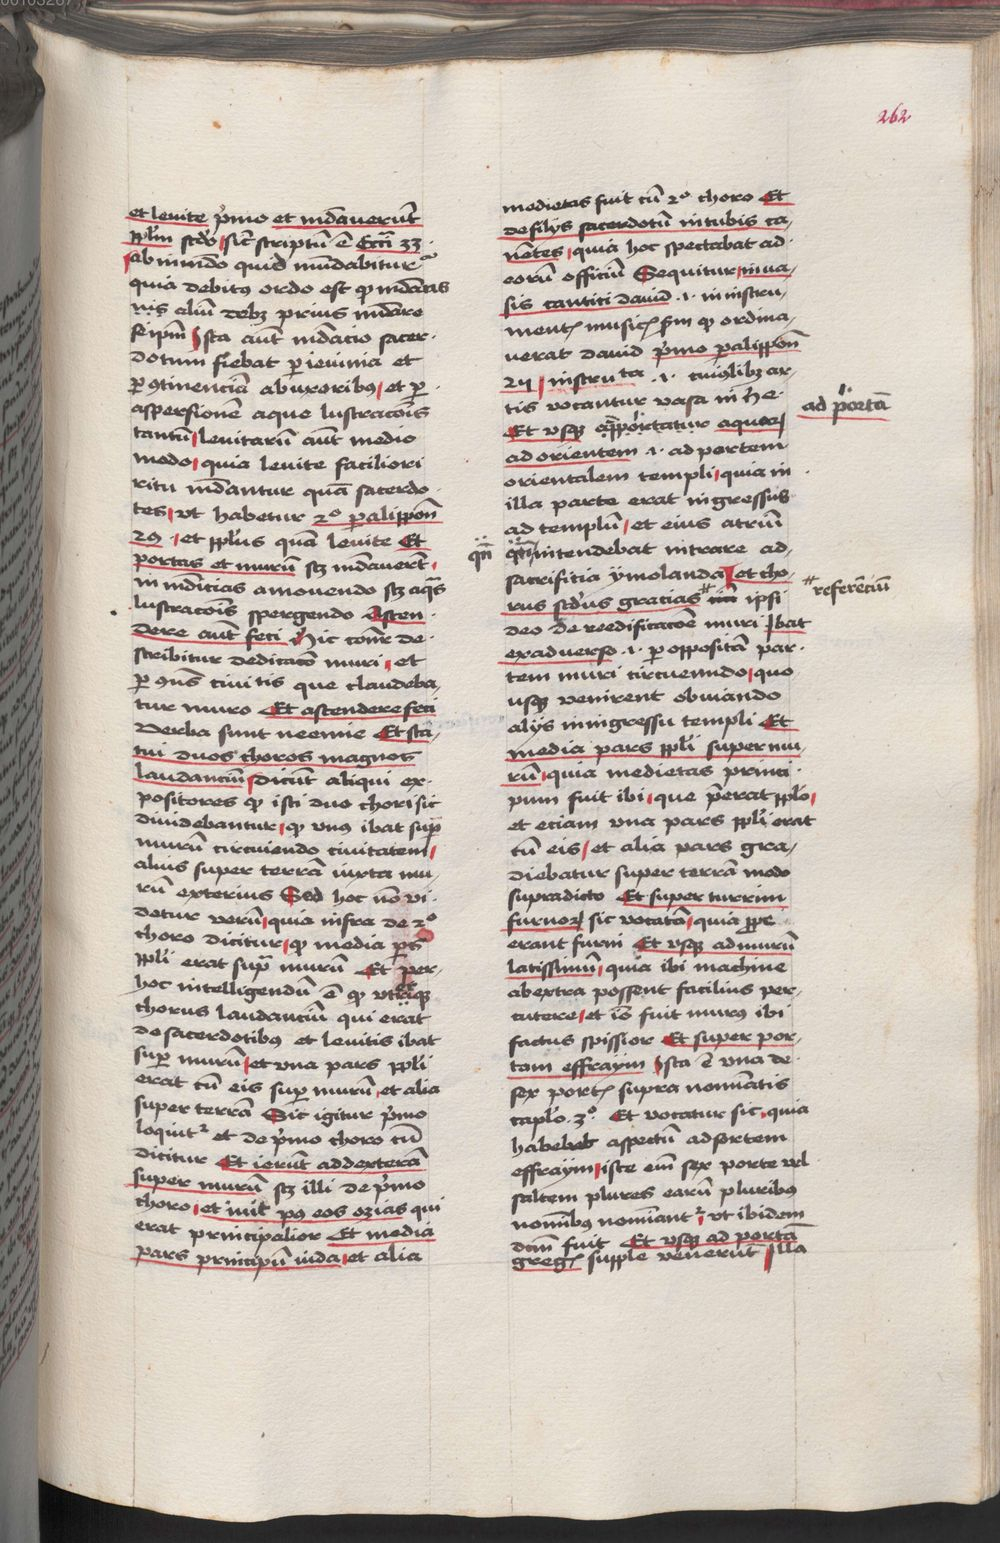 262
et leuite p̄mo et mūdauerūt
pplm̄ scd̓o sic̄ scriptū ē Ecci 33
ab inmūdo quid mūdabitur
quia debitꝰ ordo est ꝙ mūdatus
aliū debꝫ prius mūdare
seip̄m Ista aūt mūdacio sacer
dotum fiebat per ieiunia et
per ꝯtinenciā ab uxoribꝰ et per
aspersionē aque lustracōis
tantū leuitarū aūt medio
modo quia leuite faciliori
ritu mūdantur quā sacerdo
tes vt habetur 2º paralippon̄
29 et pplūs quā leuite Et
portas et murum scꝫ mūdauerūt
inmūdicias amouendo scꝫ aquā
lustracōis spergendo Ascen
dere aūt feci Hic cōnr de
scribitur dedicacō muri et
per ꝯns ciuitis que claudeba
tur muro Et ascendere feci
Verba sunt neemie Et sta
tui duos choros magnos
laudanciū Dicūt aliqui ex
positores ꝙ isti duo chori sic
diuidebantur ꝙ vnꝰ ibat supra
murū circuiendo ciuitatem
alius super terrā iuxta mu
rū exterius Sed hoc nō vi
detur verū quia infra de 2º
choro dicitur ꝙ media pars
ppli erat supra murū Et per
hoc intelligendū ē ꝙ vterqꝫ
chorus laudanciū qui erat
de sacerdotibꝰ et leuitis ibat
super murū et vna pars ppli
erat cū eis super murū et alia
super terrā Sic igitur p̄mo
loquitr et de p̄mo choro cū
dicitur Et ierūt ad dexterā
super murū scꝫ illi de p̄mo
choro et iuit pꝰ eos ozias qui
erat principalior Et media
pars principū iuda et alia
medietas fuit cū 2º choro Et
de filijs sacerdotū in tubis ca
nētes quia hoc spectabat ad
eorū officiū Sequitur in ua
sis cantici dauid .i. in instru
mentꝭ musicꝭ scd̄m ꝙ ordina
uerat dauid p̄mo paralippon̄
instruta .i. cuiuslibꝫ ar
tis vocantur vasa in he
Et vsqꝫ aquarꝝ
ad orientem .i. ad portem
orientalem templi quia in
illa parte erat ingressus
ad templū et eius atriū
intendebat intrare ad
sacrificia ymolanda et cho
rus scd̄us gracias ipsi
deo de reedificacōe muri Ibat
ex aduerso .i. per oppositam par
tem muri circueundo quo
usqꝫ venirent obuiando
alijs in ingressu templi Et
media pars ppli super mu
rū quia medietas princi
pum fuit ibi que preerat pplo
et eciam vna pars ppli erat
cū eis et alia pars gra
diebatur super terrā modo
supradicto Et super turrim
furnorꝝ sic vocatā quia prope
erant furni Et vsqꝫ ad murū
latissimū quia ibi machine
ab extra possent facilius per
cutere et iō fuit murꝰ ibi
factus spissior Et super por
tam effraym Ista ē vna de
sex portꝭ supra nominatis
caplo 3º Et vocatur sic quia
habebat aspectū ad sortem
effraym iste em̄ sex porte vel
saltem plures earū pluribꝰ
nominibꝰ nominantr vt ibidem
dcm̄ fuit Et vsqꝫ ad portā
gregꝭ supple venerūt Illa
ad portā
qn̄
referēciū